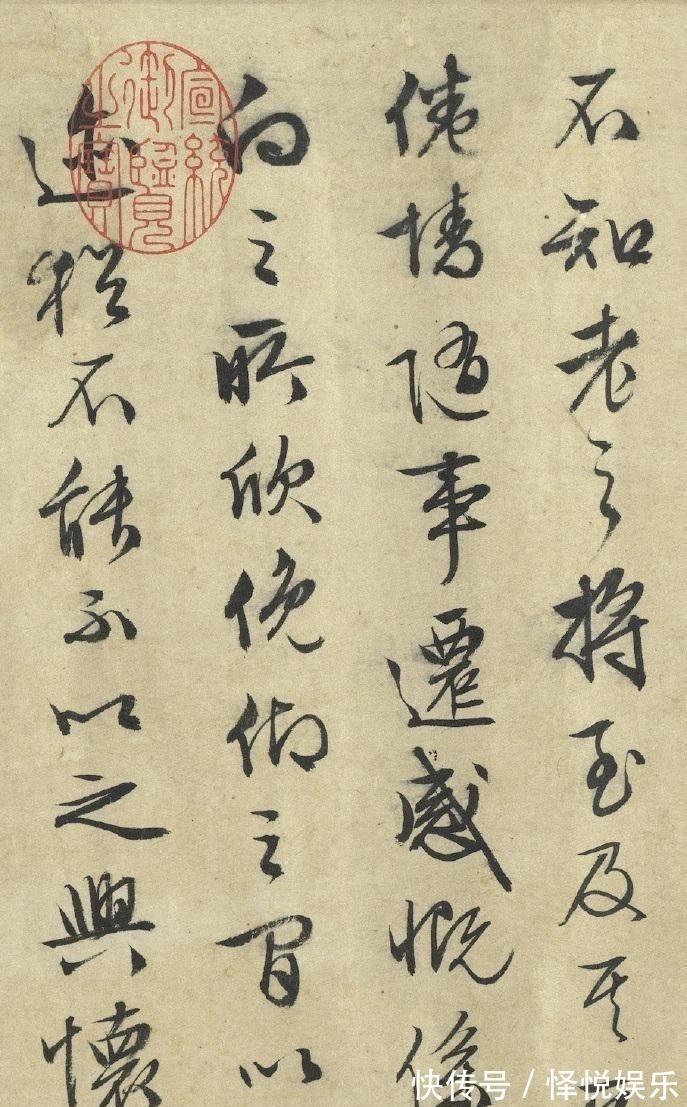 不知老之将至及其
倦情随事遷感慨係
向之所欣俛仰之間以
迹猶不能不以之興懷
宣統御覽之寶
快传号 / 怿悦娱乐